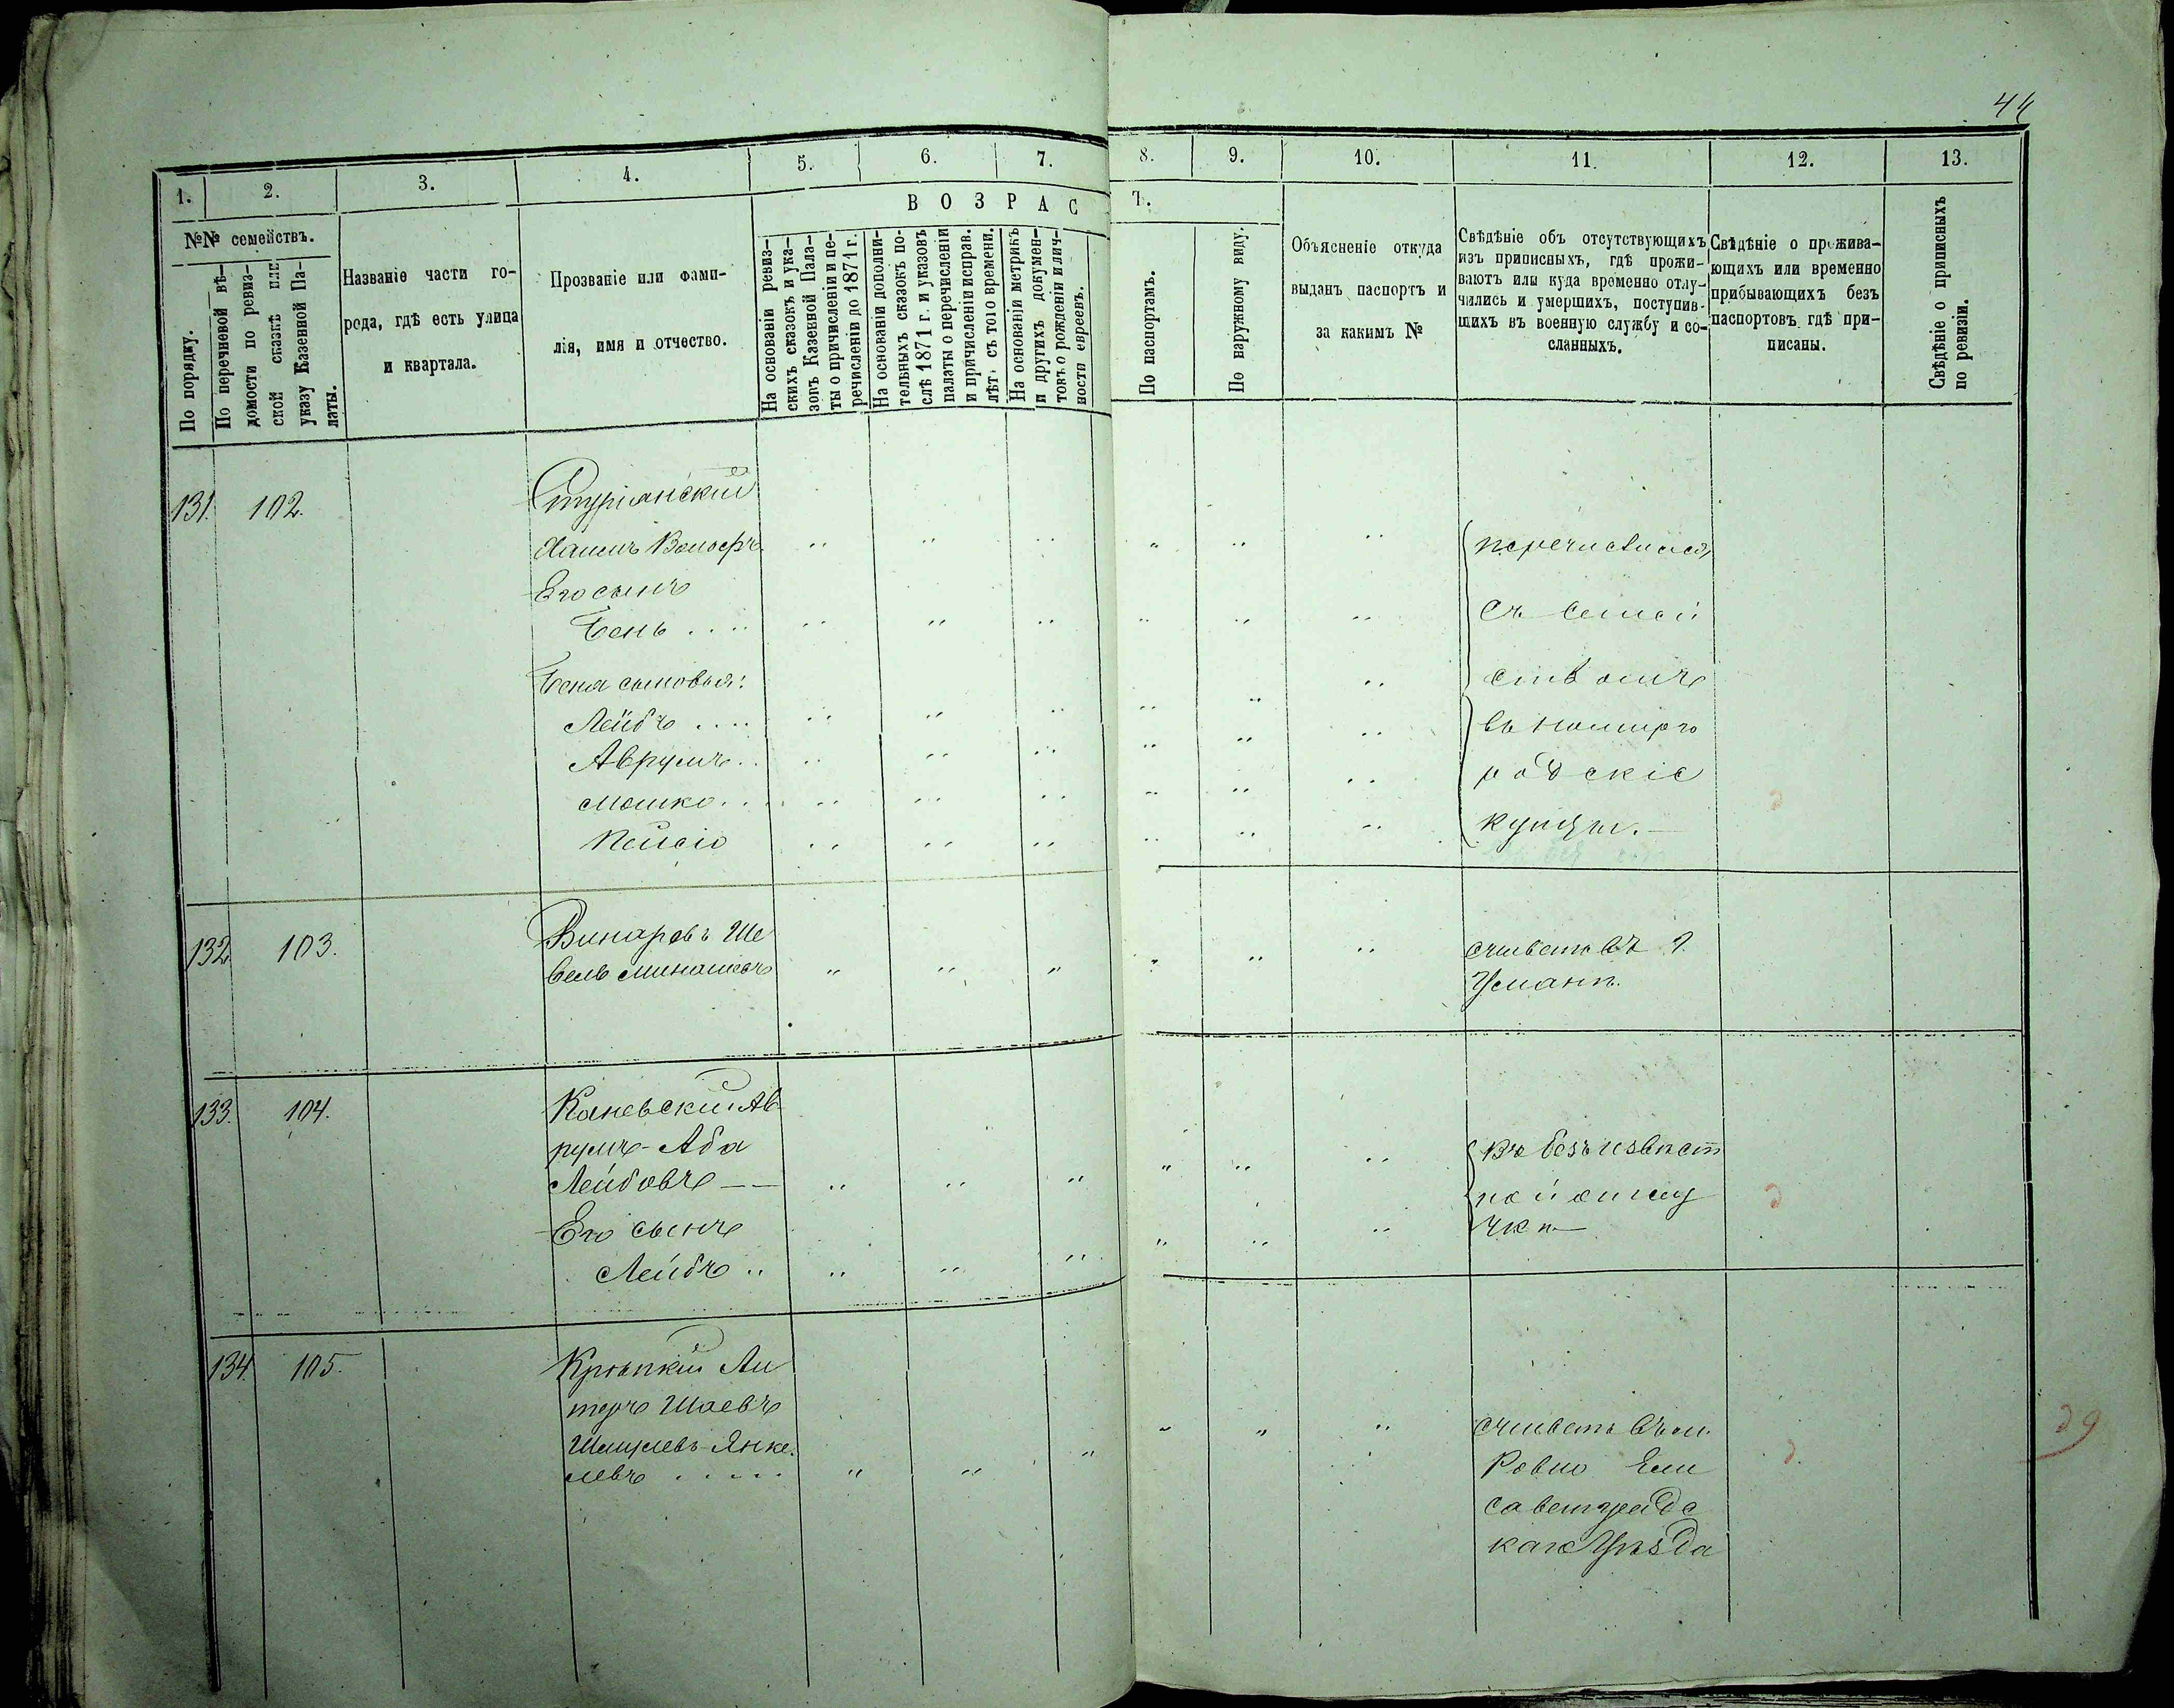 44
1. 2. 3. 4. 5. 6. 7. 8. 9. 10. 11. 12. 13.
В О З Р А С Т.
№№ семействъ.
По порядку.
По перечневой вѣ-
домости по ревиз-
ской сказкѣ или
указу Казенной Па-
латы.
Названіе части го-
рода, гдѣ есть улица
и квартала.
Прозваніе или фами-
лія, имя и отчество.
На основаніи ревиз-
скихъ сказокъ и ука-
зовъ Казенной Пала-
ты о причисленіи и пе-
речисленіи до 1871 г.
На основаніи дополни-
тельныхъ сказокъ по-
слѣ 1871 г. и указовъ
палаты о перечисленіи
и причисленіи исправ.
лѣтъ съ того времени.
На основаніи метрикъ
и другихъ докумен-
товъ о рожденіи и лич-
ности евреевъ.
По паспортамъ.
По наружному виду.
Объясненіе откуда
выданъ паспортъ и
за какимъ №
Свѣдѣніе объ отсутствующихъ
изъ приписныхъ, гдѣ прожи-
ваютъ или куда временно отлу-
чились и умершихъ, поступив-
шихъ въ военную службу и со-
сланныхъ.
Свѣдѣніе о прожива-
ющихъ или временно
прибывающихъ безъ
паспортовъ гдѣ при-
писаны.
Свѣдѣніе о приписныхъ
по ревизіи.
131. 102.
Стуріанскій
Хаимъ Вольфъ перечислился
Его сынъ
Бень съ семей
Беня сыновья: ствомъ
Лейбъ въ новмирго
Аврумъ родскіе
Мошко купцы.
Пейсіо
132. 103. Винаровъ Ше живетъ въ г.
вель Минашевъ Умани.
133. 104. Каневскій Ав
румъ-Аба въ безъизвѣст
Лейбовъ ной отлу
Его сынъ чкѣ
Лейбъ
134. 105. Крѣпкій Ли
теръ Шаевъ
Шмулевъ-Янке живетъ въ м.
левъ Ровно Ели
саветградс
каго Уѣзда